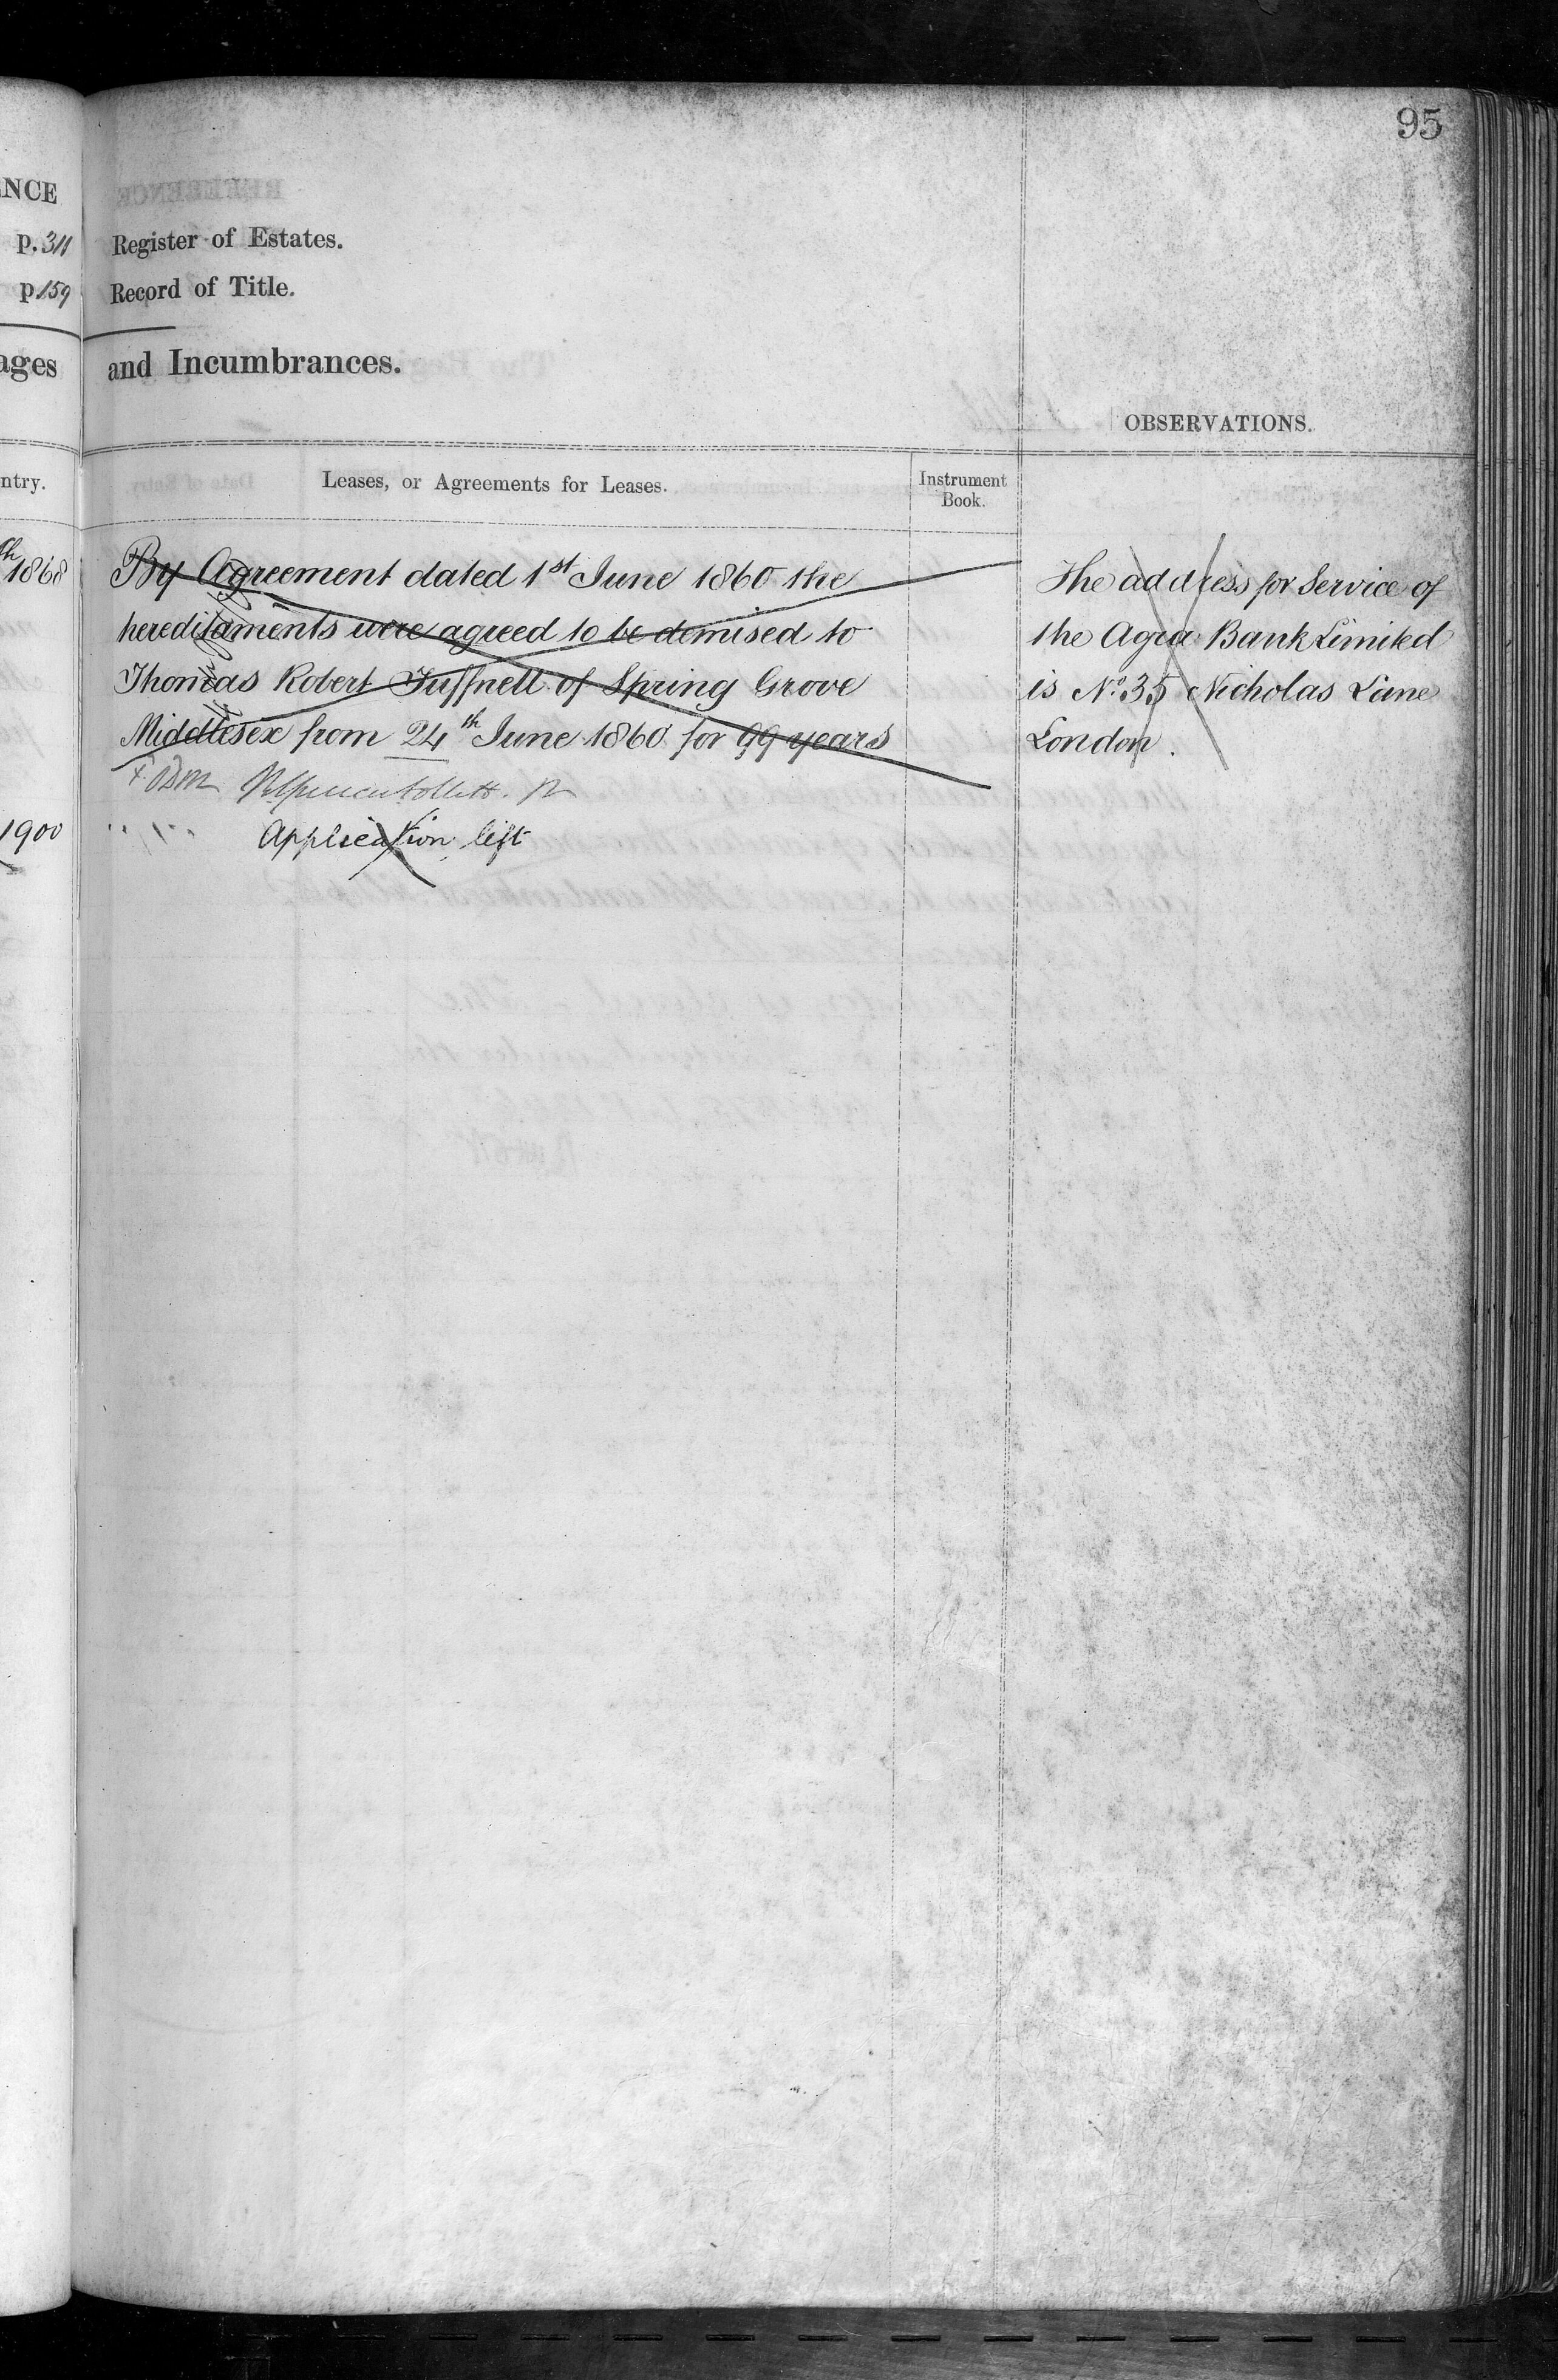 95
NCE
p. 311 Register of Estates.
p 159 Record of Title.
ages and Incumbrances.
OBSERVATIONS.
ntry.
Leases, or Agreements for Leases.
Instrument
Book.
th 1868
By Agreement dated 1st June 1860 the
hereditaments were agreed to be demised to
Thomas Robert Tuffnell of Spring Grove
Middlesex from 24th June 1860 for 99 years
Application left
1900
The address for Service of
the Agra Bank Limited
is No. 35 Nicholas Lane
London.